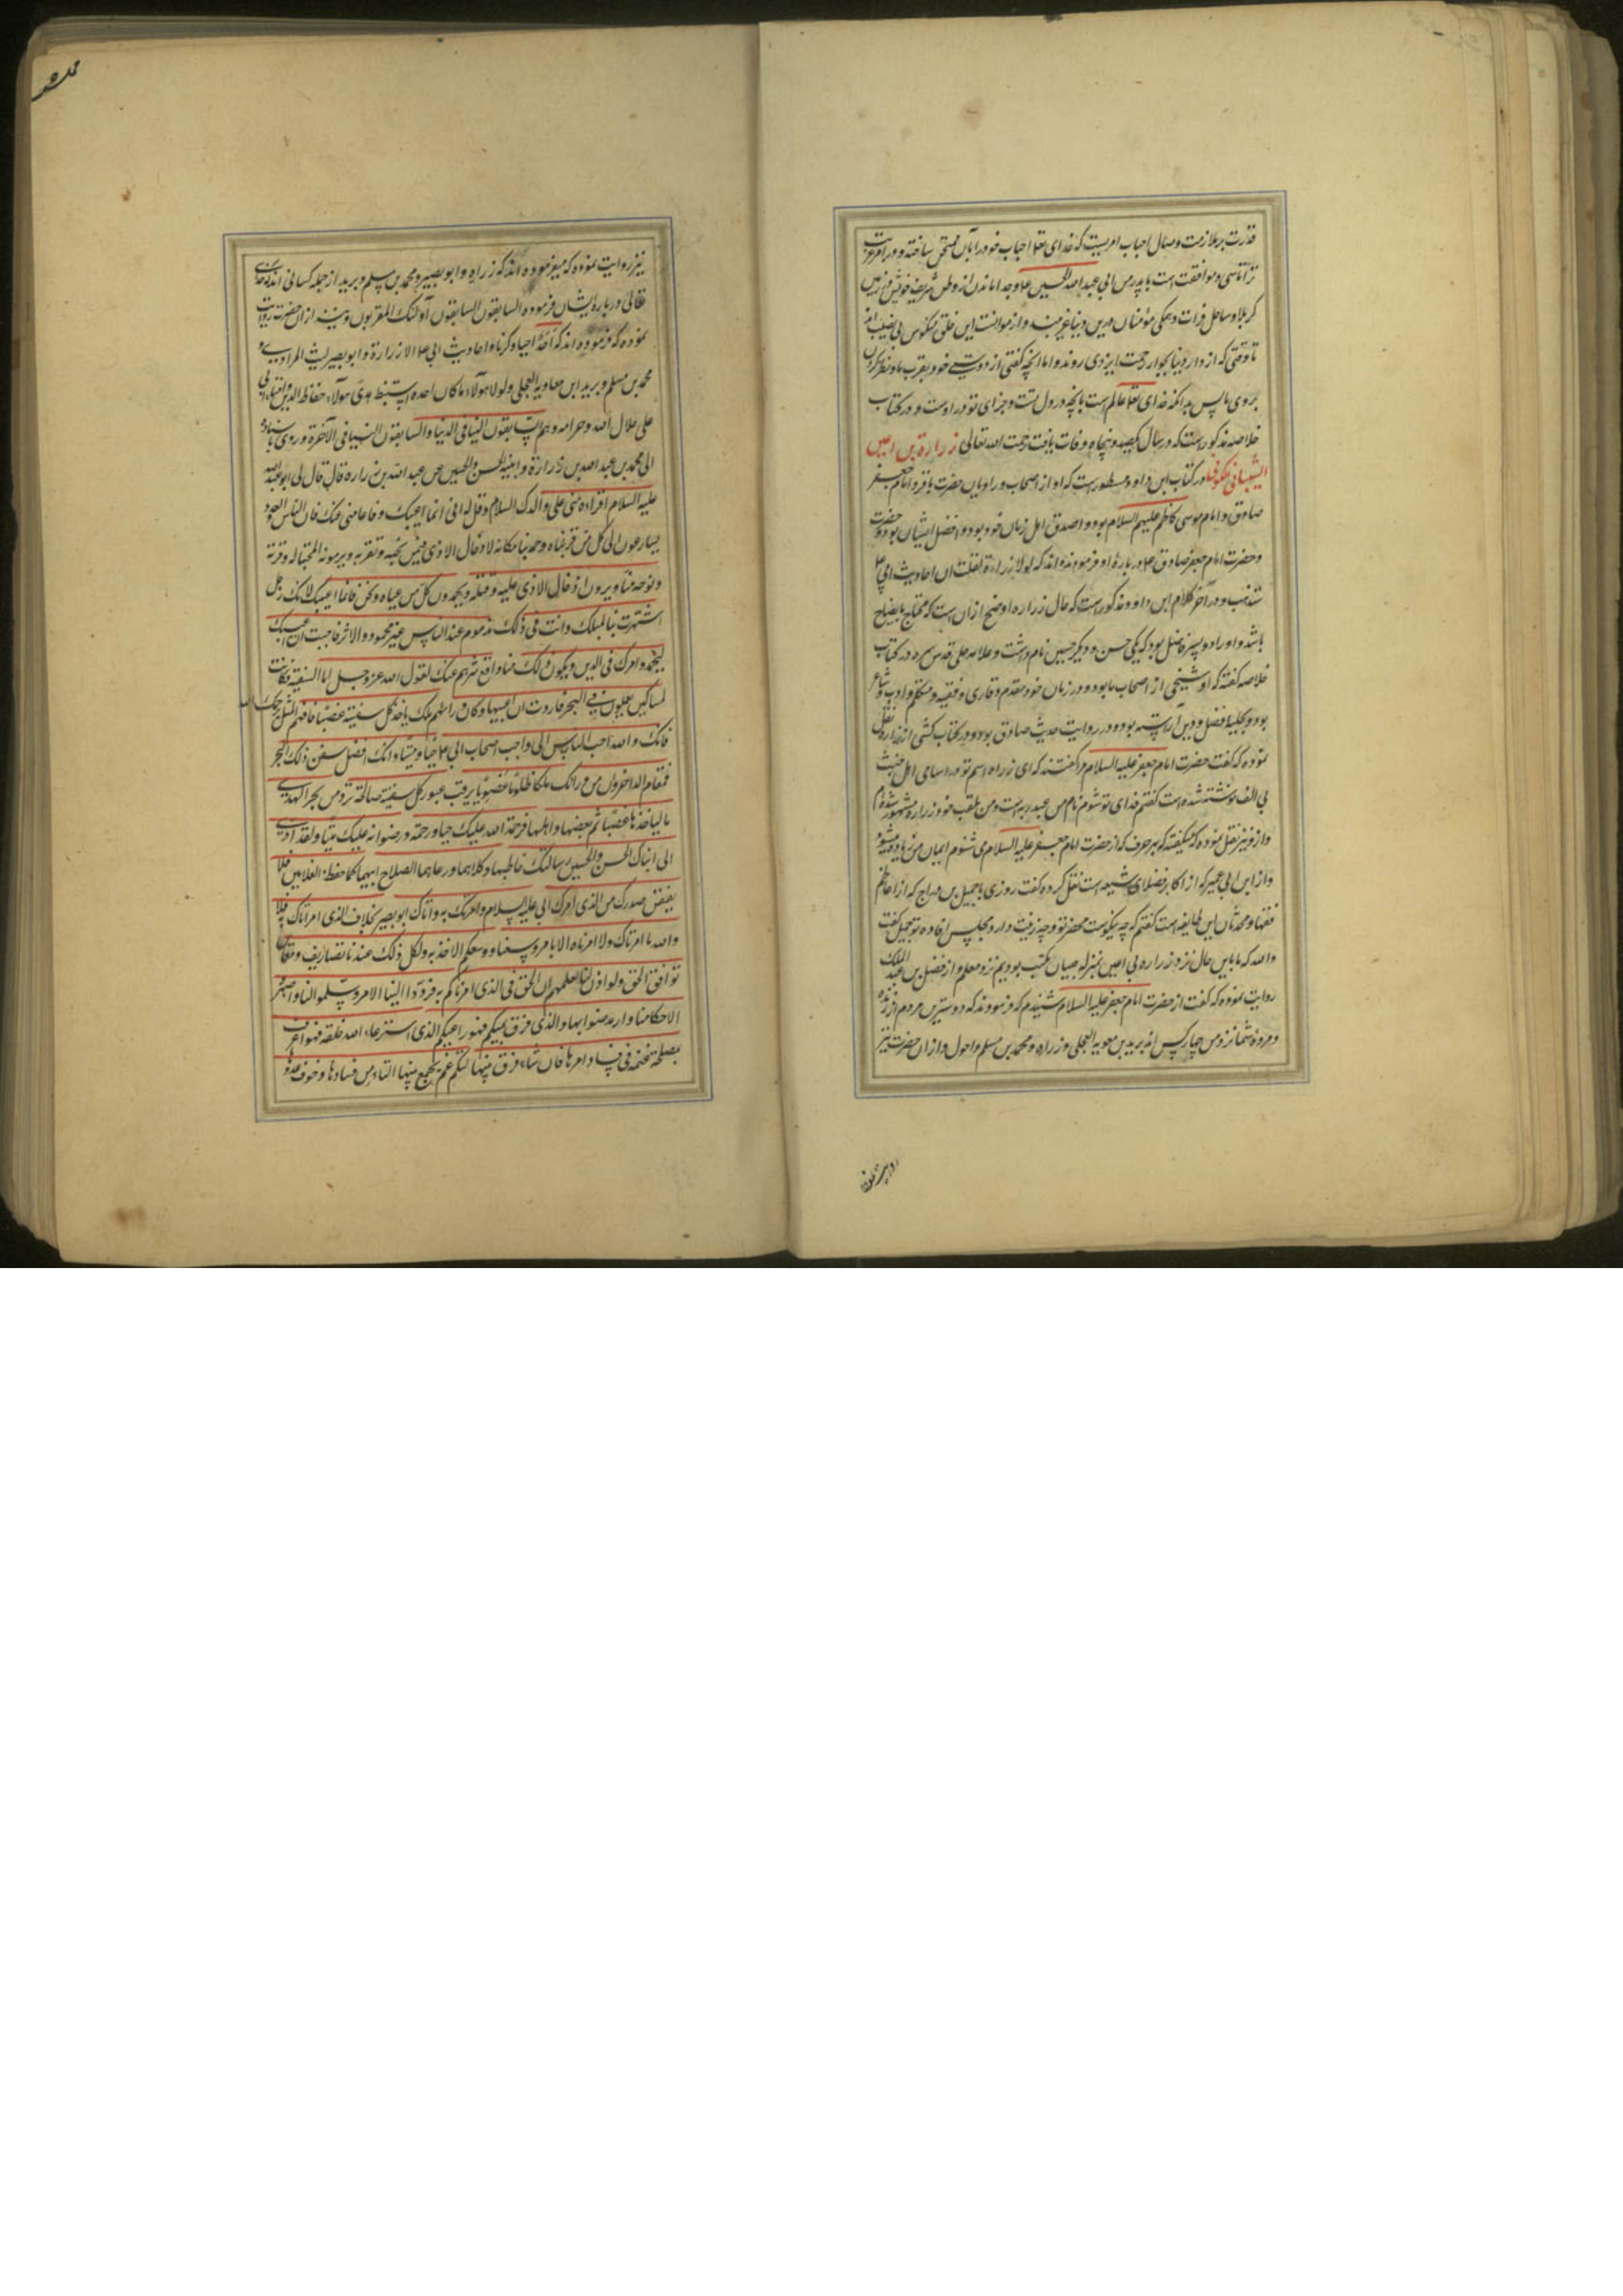 قدرت بر ملازمت وصال احباب امریست که خدای تعا احباب خود را بآن ممتحن ساخته و در امر غربت
ترا تاسی و موافقت است با پدر من ابی عبد الله الحسین ع و جدا ماندن از وطن شریف خویش در زمین
کربلا و ساحل فرات و همگی مؤمنان درین دنیا غریبند و از موانست این خلق منکوس بی نصیب اند
تا وقتی که از دار دنیا بجوار رحمت ایزدی روند و اما آنچه گفتی از دوستی خود بقرب ما و نظر کردن
بروی ما پس بدانکه خدای تعا عالم است بآنچه در دل تست و جزای تو در اوست و در کتاب
خلاصه مذکورست که در سال یکصد و پنجاه وفات یافت رحمت الله تعالی زرارة بن اعین
الشیبانی الکوفی در کتاب ابن داود مسطورست که او از اصحاب و راویان حضرت باقر و امام جعفر
صادق و امام موسی کاظم علیهم السلام بود و اصدق اهل زمان خود بود و افضل ایشان بود
و حضرت امام جعفر صادق ع درباره او فرموده اند که لولا زرارة لقلت ان احادیث ابی ع
ستذهب و در آخر کلام ابن داود مذکور است که حال زراره اوضح از ان است که محتاج بایضاح
باشد و او را دو پسر فاضل بود که یکی حسن و دیگر حسین نام داشت و علامه حلی قدس سره در کتاب
خلاصه گفته که او شیخی از اصحاب ما بود و در زمان خود مقدم و قاری و فقیه و متکلم و ادیب و شاعر
بود و بحلیه فضل و دین آراسته بود و در روایت حدیث صادق بود و در کتاب کشی از زراره نقل
نموده که گفت حضرت امام جعفر علیه السلام مرا گفتند که ای زراره اسم تو در اسامی اهل جنت
بی الف نوشته شده است گفتم فدای تو شوم نام من عبد ربه است و من بلقب خود زراره مشهور شده ام
و از و نیز نقل نموده که میگفته که بهر حرف که از حضرت امام جعفر علیه السلام می شنوم ایمان من زیاده میشود
و از ابن ابی عمیر که از اکابر فضلای شیعه است نقل کرده که گفت روزی با جمیل بن دراج که از اعاظم
فقها و محدثان این طایفه است گفتم که چه نیکوست محضر تو و چه زینت دارد مجلس افاده تو جمیل گفت
والله که ما باین حال نزد زراره بن اعین بمنزله صبیان مکتب بودیم نزد معلم و از فضل بن عبد الملک
روایت نموده که گفت از حضرت امام جعفر علیه السلام شنیدم که فرمودند که دوسترین مردم از زنده
و مرده شما نزد من چهار کس اند برید بن معویه العجلی و زراره و محمد بن مسلم و احول و از ان حضرت نیز
نیز روایت نموده که میفرموده اند که زراره و ابو بصیر و محمد بن مسلم و برید از جمله کسانی اند که خدای
تعالی درباره ایشان فرموده السابقون السابقون اولئک المقربون و نیز از ان حضرت روایت
نموده که فرموده اند که ما احد احیا ذکرنا و احادیث ابی ع الا زرارة و ابو بصیر لیث المرادی و
محمد بن مسلم و برید ابن معاویه العجلی و لولا هؤلاء ما کان احد یستنبط هدی هؤلاء حفاظ الدین و امناء ابی
علی حلال الله و حرامه و هم السابقون الینا فی الدنیا و السابقون الینا فی الآخرة و روی باسناده
الی محمد بن عبد الله بن زرارة و ابنیه الحسن و الحسین عن عبد الله بن زراره قال قال لی ابو عبد الله
علیه السلام اقراء منی علی والدک السلام و قل له انی انما اعیبک دفاعا منی عنک فان الناس و العدو
یسارعون الی کل من قربناه و حمدنا مکانه لادخال الاذی فیمن نحبه و نقربه و یرمونه لمحبتنا له و قربه
و دنوه منا و یرون ادخال الاذی علیه و قتله و یحمدون کل من عبناه و نحن فانما اعیبک لانک رجل
اشتهرت بنا لمیلک الینا و انت فی ذلک مذموم عند الناس غیر محمود الاثر فاحببت ان اعیبک
لیحمدوا امرک فی الدین و یکون ذلک منا دافع شرهم عنک لقول الله عز و جل اما السفینة فکانت
لمساکین یعملون فی البحر فاردت ان اعیبها و کان ورائهم ملک یاخذ کل سفینة غصبا فافهم المثل یرحمک الله
فانک والله احب الناس الی و احب اصحاب ابی ع حیا و میتا و انک افضل سفن ذلک البحر
القمقام الداخر و ان من ورائک ملکا ظلوما غصوبا یرقب عبور کل سفینة صالحة ترد من بحر الهدی
لیاخذها غصبا ثم یغصبها و اهلها فرحمة الله علیک حیا و رحمته و رضوانه علیک میتا و لقد ادی
الی ابناک الحسن و الحسین رسالتک حاطهما و کلاهما و رعاهما الصلاح ابیهما کما حفظ الغلامین فلا
یضیقن صدرک من الذی امرک ابی علیه السلام و امرتک به و اتاک ابو بصیر بخلاف الذی امرناک به فلا
والله ما امرناک و لا امرناه الا بامر وسعنا و وسعکم الاخذ به و لکل ذلک عندنا تصاریف و معان
توافق الحق و لو اذن لنا لعلمتم ان الحق فی الذی امرناکم به فردوا الینا الامر و سلموا لنا و اصبروا
لاحکامنا و ارضوا بها و الذی فرق بینکم فهو راعیکم الذی استرعاه الله خلقه فهو اعرف
بمصلحة غنمه فی فساد امرها فان شاء فرق بینها لتسلم ثم یجمع بینها لتامن من فسادها و خوف عدوها